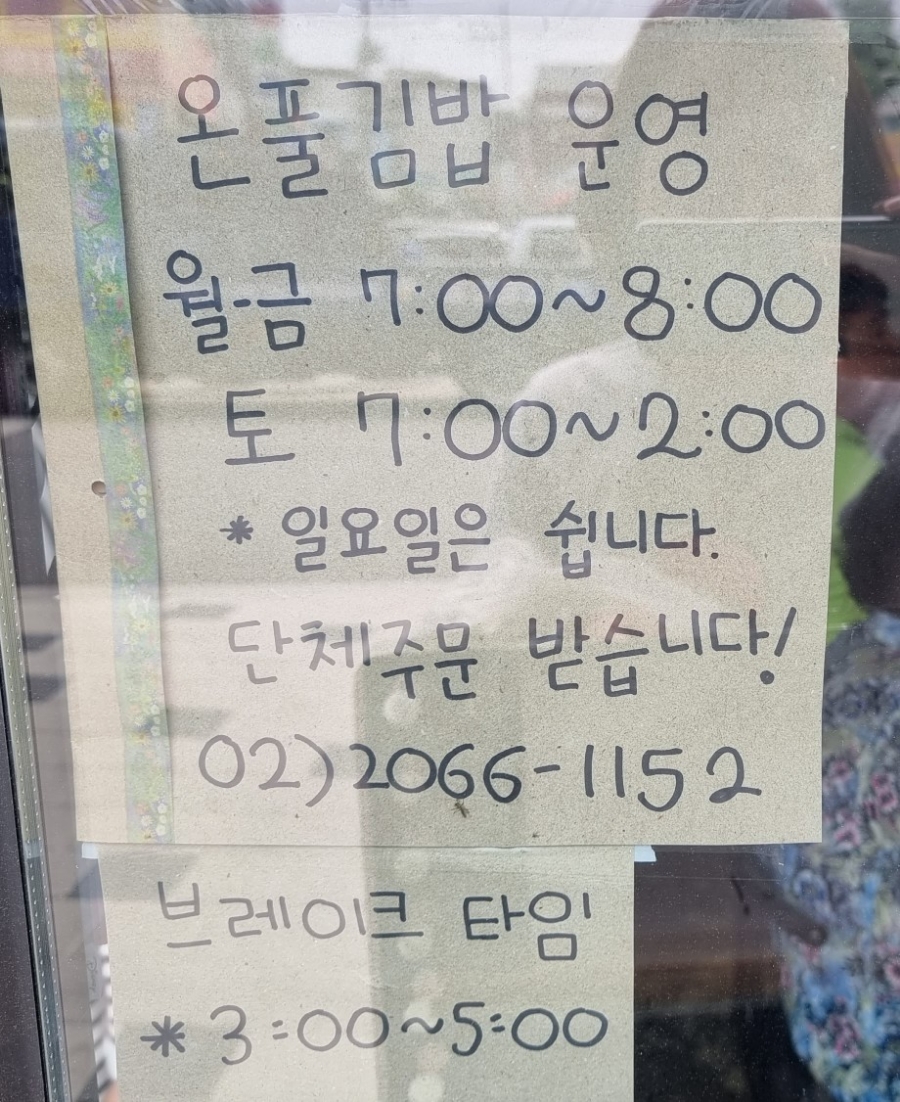 온풀김밥 운영
월-금 7:00~8:00
토 7:00~2:00
* 일요일은 쉽니다.
단체주문 받습니다!
02)2066-1152
브레이크 타임
* 3:00~5:00